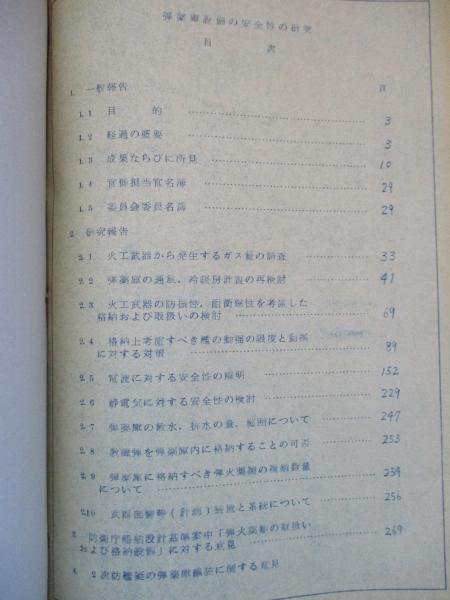 弾薬庫設備の安全性の研究
目 次
1. 一般報告 頁
1.1 目 的 3
1.2 経過の概要 3
1.3 成果ならびに所見 10
1.4 官側担当官名簿 29
1.5 委員会委員名簿 29
2. 研究報告
2.1 火工武器から発生するガス量の調査 33
2.2 弾薬庫の通風、冷暖房計画の再検討 41
2.3 火工武器の防振性、耐衝撃性を考慮した
格納および取扱いの検討 69
2.4 格納上考慮すべき艦の動揺の限度と動揺
に対する対策 89
2.5 電波に対する安全性の 152
2.6 静電気に対する安全性の検討 229
2.7 弾薬庫の散水、 水の量、範囲について 247
2.8 弾を弾薬庫内に格納することの可否 253
2.9 弾薬庫に格納すべき弾火薬類の種類数量
について 254
2.10 武器 ( ) と系統について 256
3. 防衛庁船舶設計基準案中「弾火薬類の取扱い
および格納設備」に対する意見 269
4. 2次防艦艇の弾薬庫艤装に関する意見